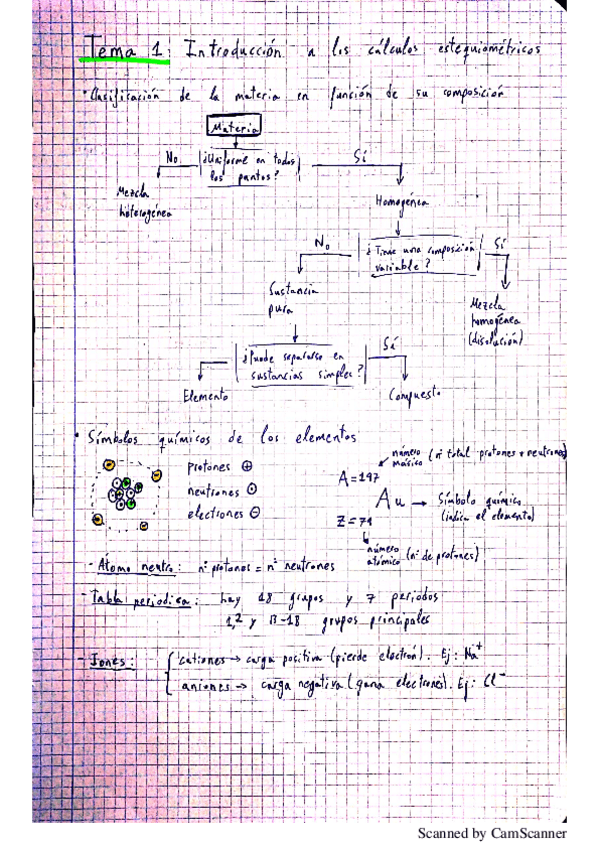 Tema 1: Introducción a los cálculos estequiométricos
· Clasificación de la materia en función de su composición
Materia
No
¿Uniforme en todos
los puntos?
Sí
Mezcla
heterogénea
Homogénea
No
¿Tiene una composición
variable?
Sí
Sustancia
pura
Mezcla
homogénea
(disolución)
¿Puede separarse en
sustancias simples?
Sí
Elemento
Compuesto
· Símbolos químicos de los elementos
protones ⊕
neutrones ⊙
electrones ⊖
número
másico (nº total protones + neutrones)
A=197
Au → Símbolo químico
(indica el elemento)
Z=79
número
atómico (nº de protones)
- Átomo neutro: nº protones = nº neutrones
- Tabla periodica: hay 18 grupos y 7 periodos
1,2 y 13-18 grupos principales
- Iones: cationes → carga positiva (pierde electrón). Ej: Na⁺
aniones → carga negativa (gana electrones). Ej: Cl⁻
Scanned by CamScanner